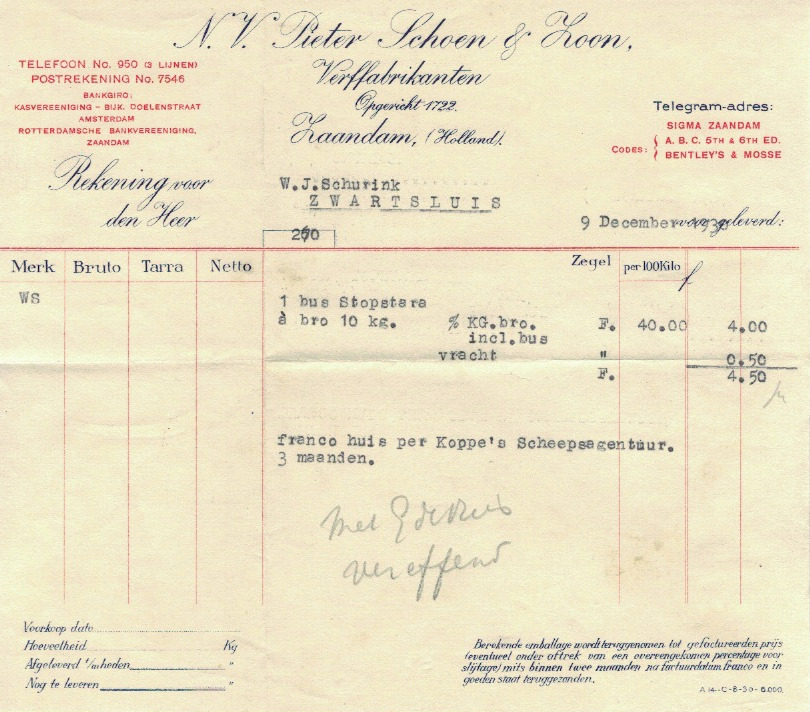 N.V. Pieter Schoen & Zoon,
Verffabrikanten
Opgericht 1722.
Zaandam, (Holland).
TELEFOON No. 950 (3 LIJNEN)
POSTREKENING No. 7546
BANKGIRO:
KASVEREENIGING - BIJK. DOELENSTRAAT
AMSTERDAM
ROTTERDAMSCHE BANKVEREENIGING,
ZAANDAM
Telegram-adres:
SIGMA ZAANDAM
CODES: A.B.C. 5TH & 6TH ED.
BENTLEY'S & MOSSE
Rekening voor
den Heer
W.J.Schurink
ZWARTSLUIS
9 December voor geleverd:
Merk Bruto Tarra Netto Zegel per 100 Kilo f
WS
1 bus Stopstara
à bro 10 kg. % KG.bro. F. 40.00 4.00
incl.bus
vracht " 0.50
F. 4.50
franco huis per Koppe's Scheepsagentuur.
3 maanden.
Met
vereffend
Voorkoop dato
Hoeveelheid Kg
Afgeleverd t/m heden "
Nog te leveren "
Berekende emballage wordt teruggenomen tot gefactureerden prijs
(eventueel onder aftrek van een overeengekomen percentage voor
slijtage) mits binnen twee maanden na factuurdatum franco en in
goeden staat teruggezonden.
A 14-C-8-30-6.000.